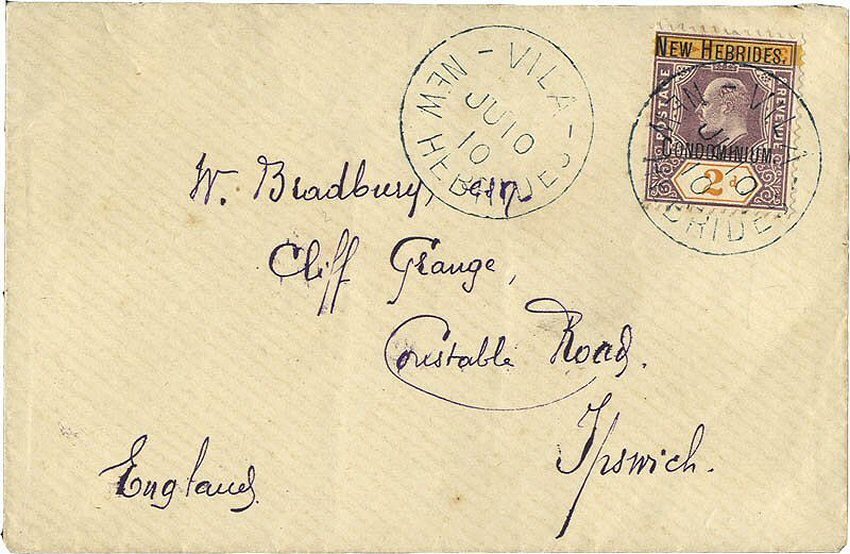 VILA
NEW HEBRIDES
JU 10
10
NEW HEBRIDES.
POSTAGE
& REVENUE
CONDOMINIUM.
2d
VILA
JU 10
10
W. Bradbury, esq
Cliff Grange,
Constable Road.
Ipswich.
England